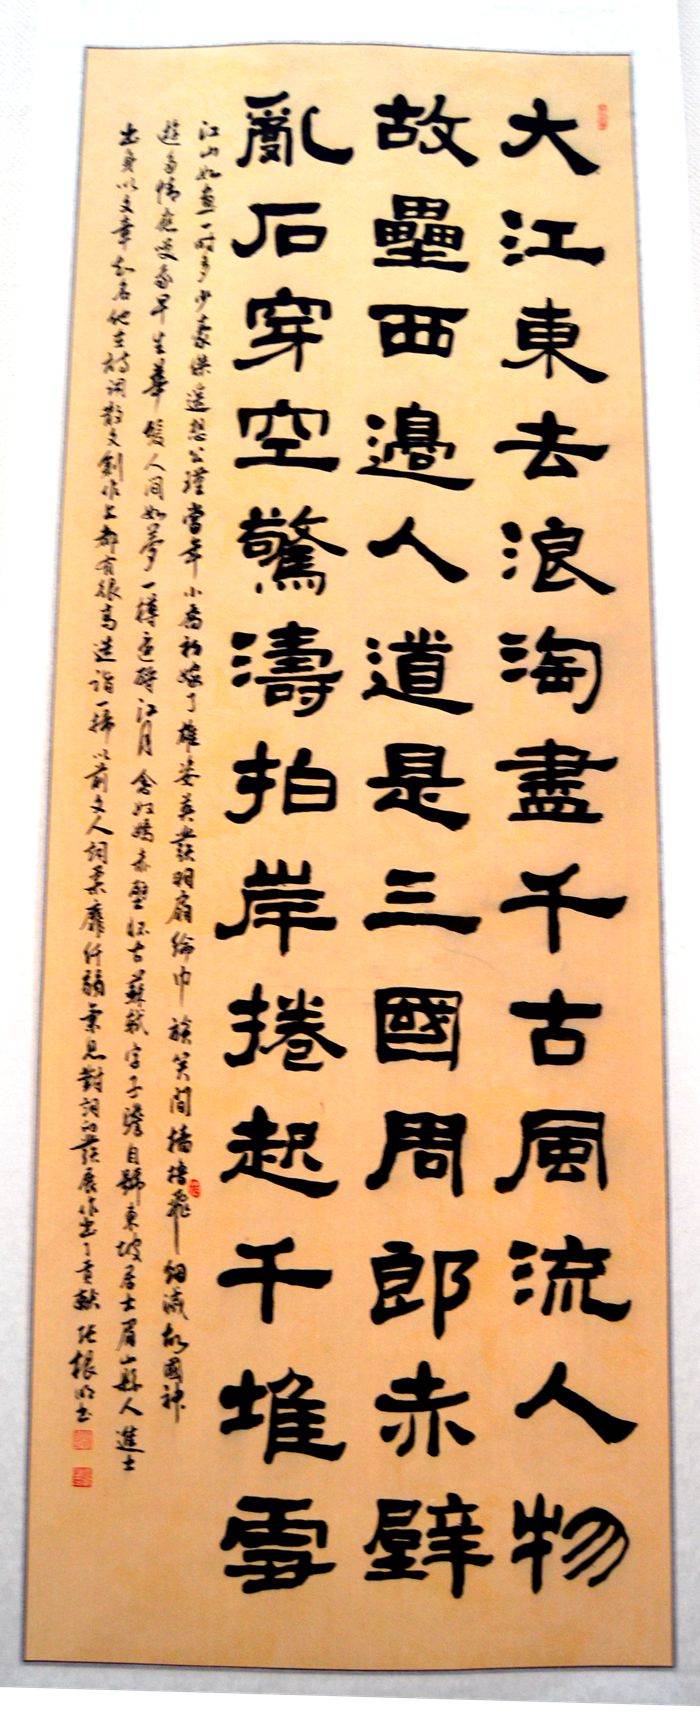 大江東去浪淘盡千古風流人物
故壘西邊人道是三國周郎赤壁
亂石穿空驚濤拍岸捲起千堆雪
江山如畫一時多少豪傑遥想公瑾當年小喬初嫁了雄姿英發羽扇綸巾談笑間檣櫓飛烟滅故國神
遊多情應笑我早生華髮人间如夢一樽還酹江月念奴嬌赤壁懷古蘇軾字子瞻自號東坡居士眉山縣人進士
出身以文章知名他在詩词散文創作上都有很高造诣一掃以前文人詞柔靡纤弱气息對詞的發展作出了貢献张根书